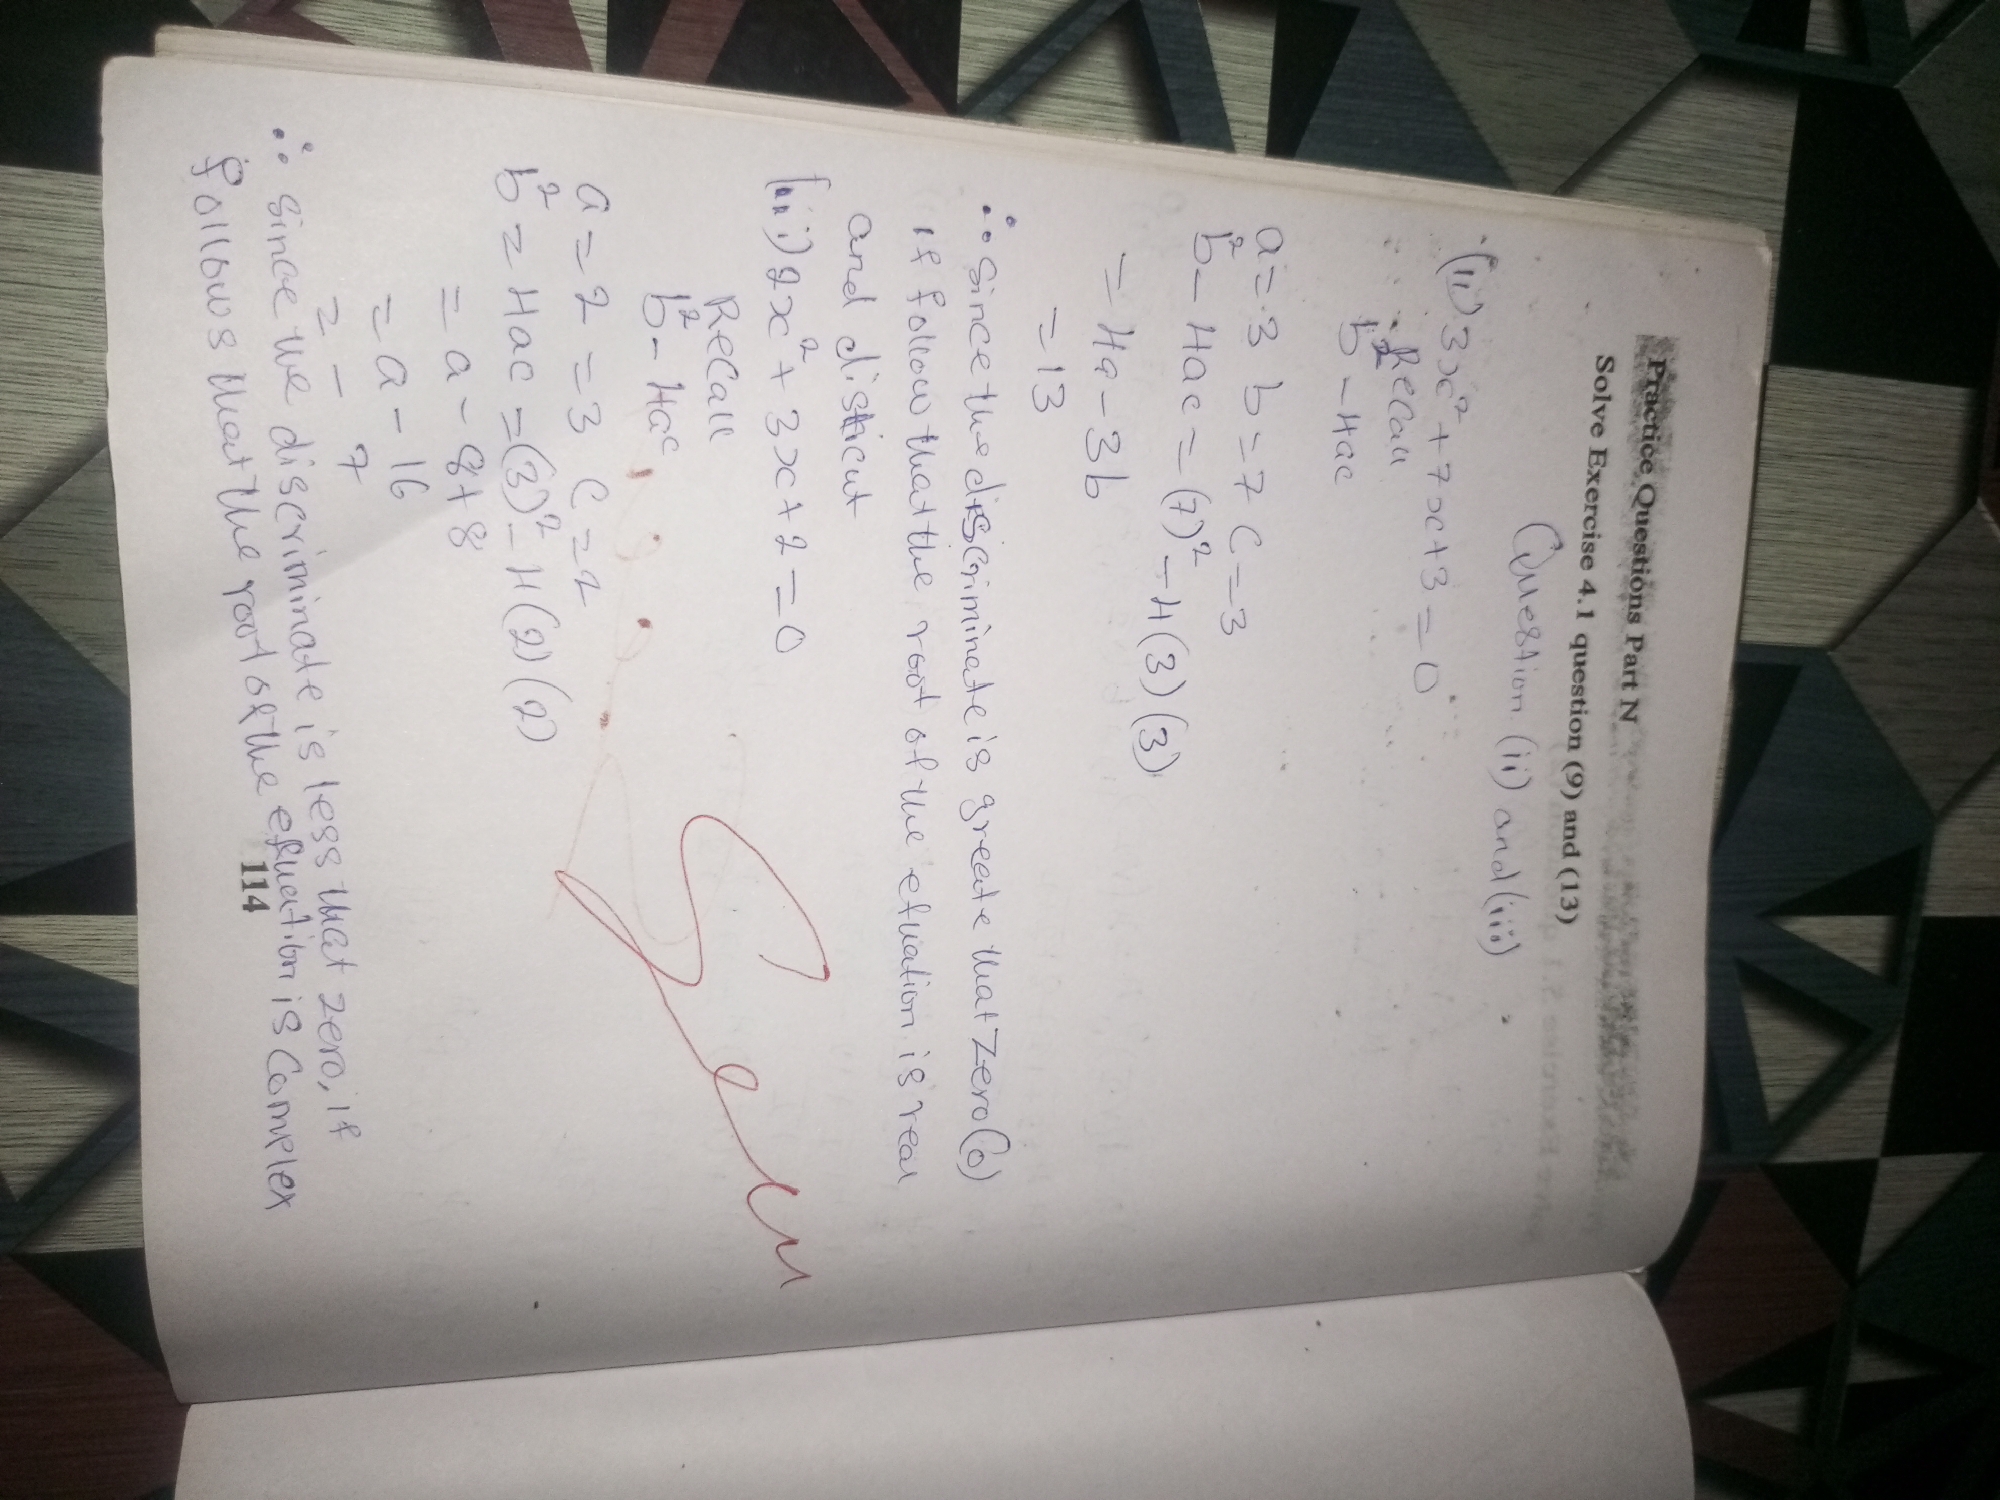 Practice Questions Part N
Solve Exercise 4.1 question (9) and (13)
Question (ii) and (iii)
(ii) 3x² + 7x + 3 = 0
Recall
b² - 4ac
a = 3 b = 7 c = 3
b² - 4ac = (7)² - 4(3)(3)
= 49 - 36
= 13
∴ since the discriminate is greate that zero (0)
if follow that the root of the equation is real
and disticut
(iii) 2x² + 3x + 2 = 0
Recall
b² - 4ac
a = 2 = 3 c = 2
b² = 4ac = (3)² - 4(2)(2)
= 9 - 8 + 8
= 9 - 16
= - 7
∴ since the discriminate is less that zero, if
follows that the root of the equation is complex
114